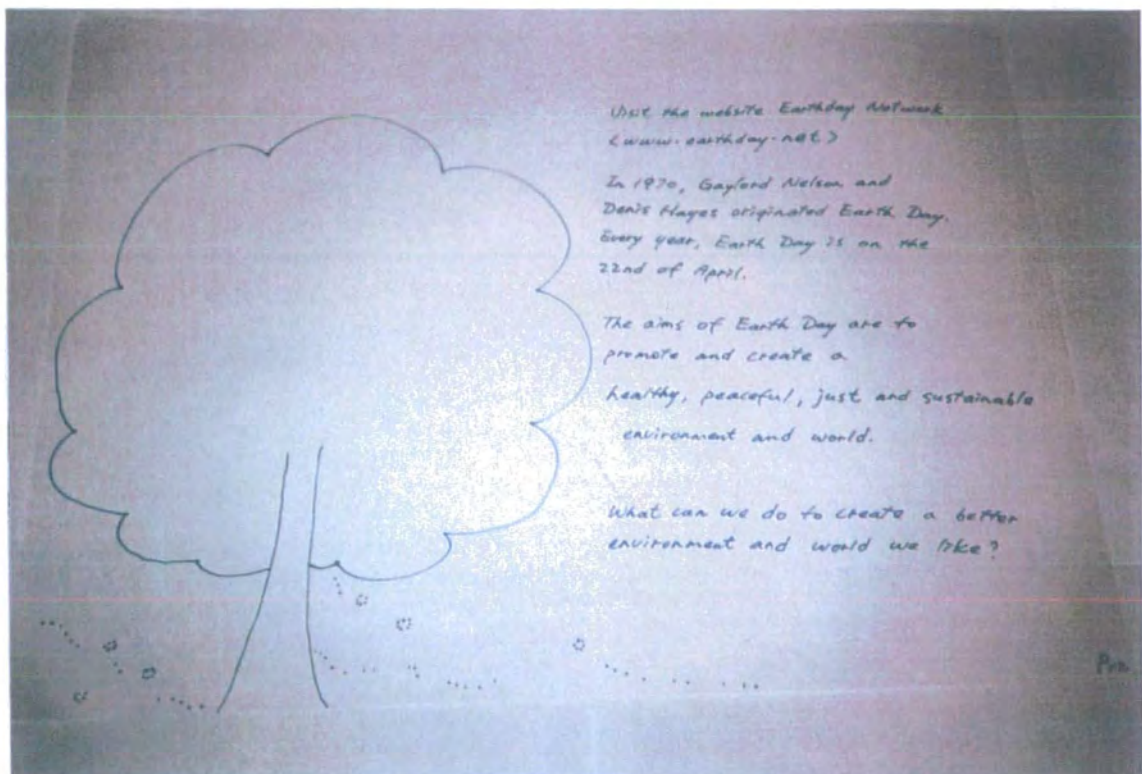 Visit the website Earthday Network
<www.earthday.net>
In 1970, Gaylord Nelson and
Denis Hayes originated Earth Day.
Every year, Earth Day is on the
22nd of April.
The aims of Earth Day are to
promote and create a
healthy, peaceful, just and sustainable
environment and world.
What can we do to create a better
environment and world we like?